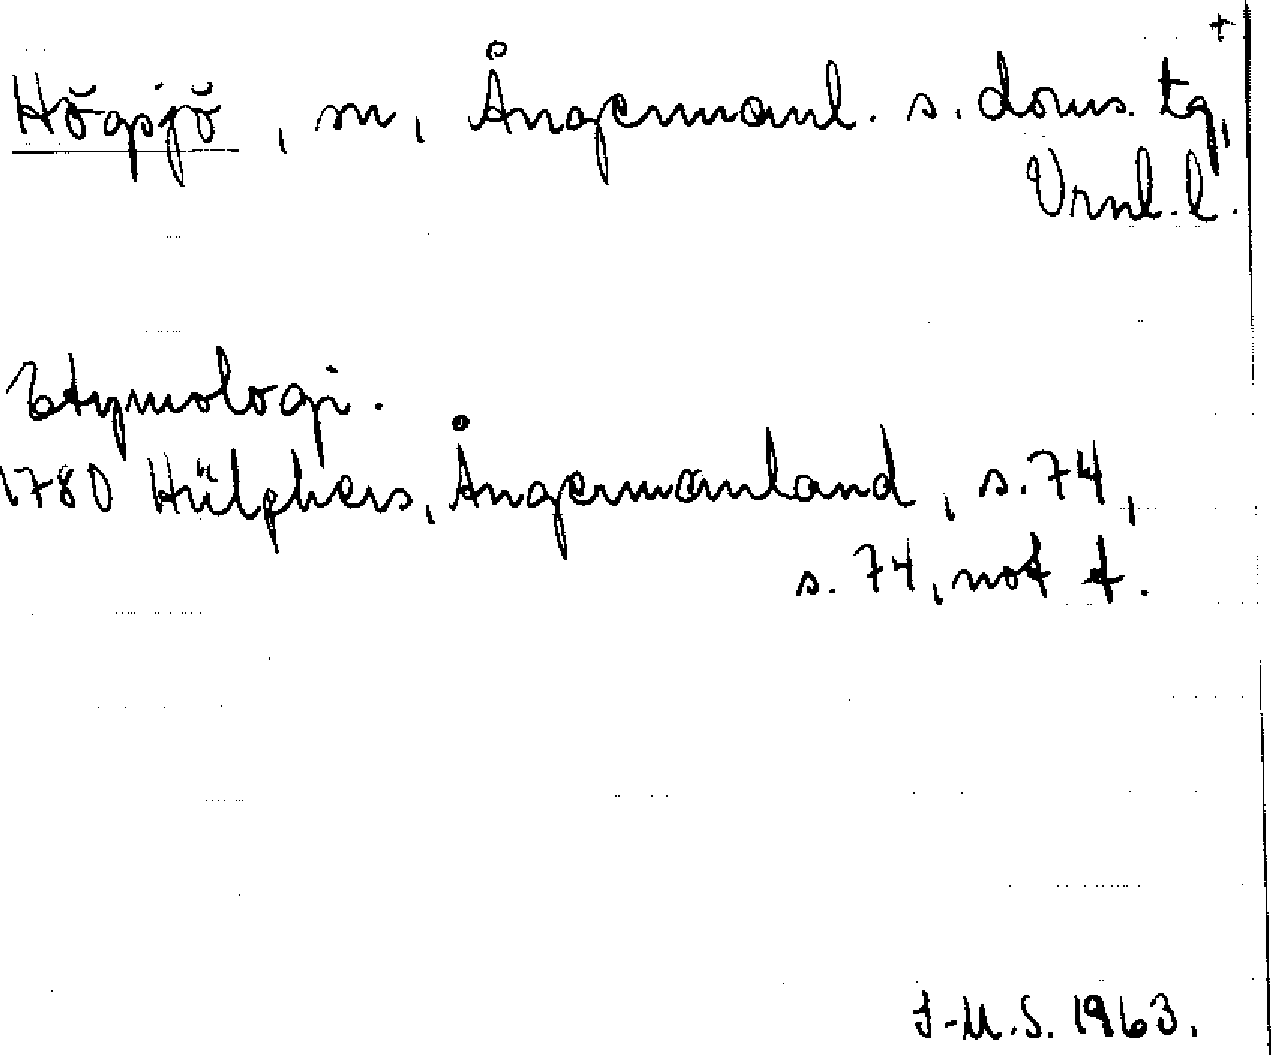 +
Högsjö, sn, Ångermanl. s. doms. tg,
Vrnl. l.
Etymologi.
1780 Hülphers, Ångermanland, s. 74,
s. 74, not t.
J-M.S. 1963.